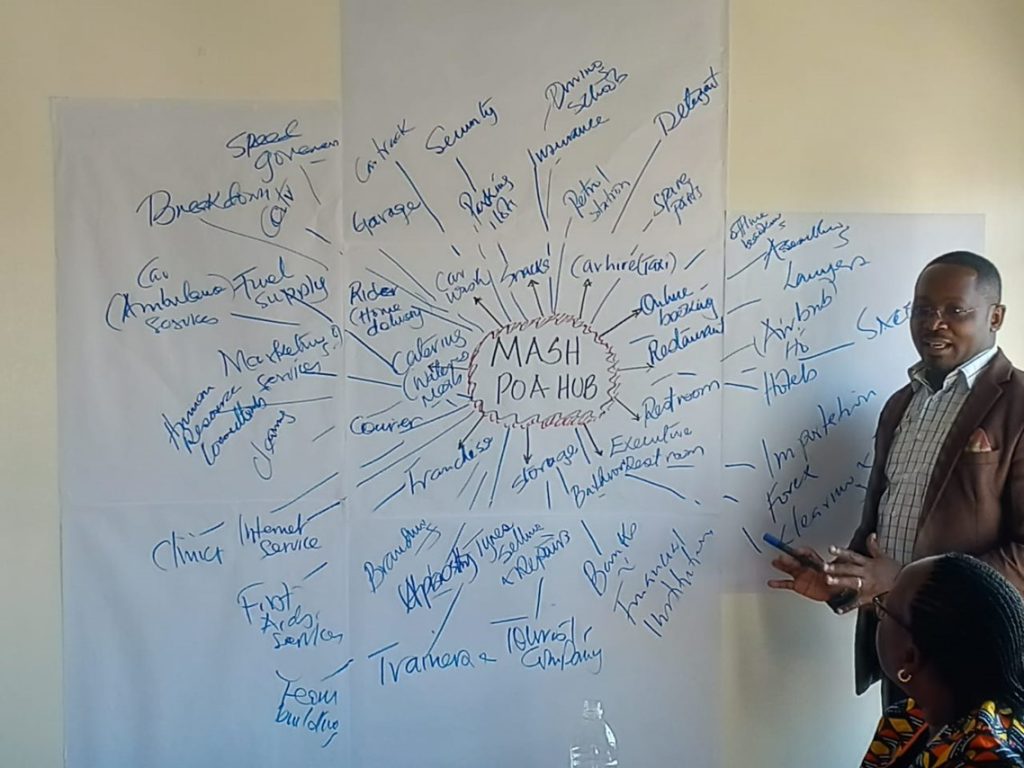 Speed
Breakdown
Car track
Security
Driving
School
Insurance
Detergent
Garage
Parking
Petrol
station
Spare
parts
Car
(Ambulance)
services
Fuel
supply
Rider
(Home
delivery
Car
wash
Snacks
Car hire (Taxi)
offline
booking
Lawyers
Online
booking
Restaurant
(Airbnb
Hotels
Marketing
services
Human
Resource
Catering
Courier
MASH
POA HUB
Restroom
Executive
Restroom
Franchise
Storage
Importation
Forex
Clearing
Clinic
Internet
service
Branding
Tyres
selling
& Repairs
Banks
Financial
Institution
First
Aids
services
Trainers
Tourist
Company
Team
building